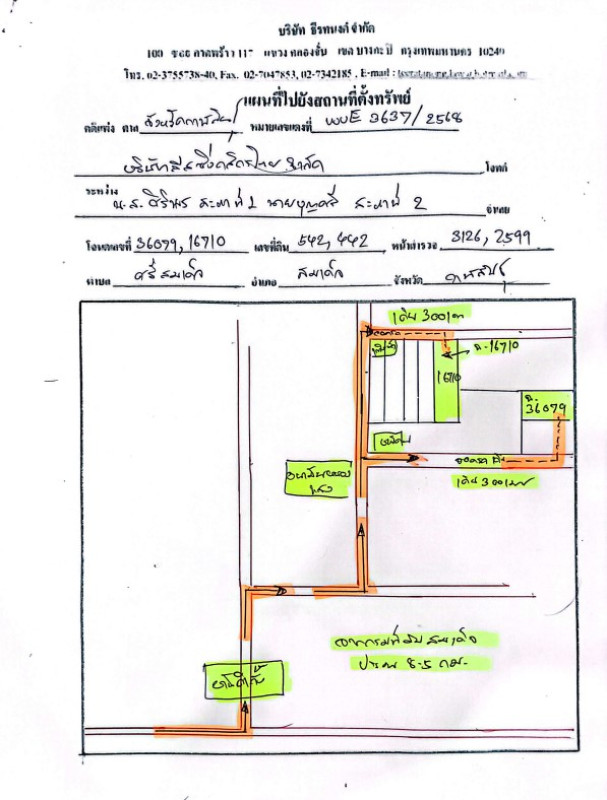 บริษัท ธีรทนงค์ จำกัด
100 ซอย ลาดพร้าว 117 แขวง คลองจั่น เขต บางกะปิ กรุงเทพมหานคร 10240
โทร. 02-3755738-40, Fax. 02-7047853, 02-7342185 , E-mail :
แผนที่ไปยังสถานที่ตั้งทรัพย์
คดีแพ่ง ศาล จังหวัดกาฬสินธุ์ หมายเลขแดงที่ ผบE 3637/2568
บริษัทลีสซิ่งกสิกรไทย จำกัด โจทก์
ระหว่าง
น.ส. ศิริพร ที่ 1 นายบุญศรี ที่ 2 จำเลย
โฉนดเลขที่ 36079, 16710 เลขที่ดิน 542, 442 หน้าสำรวจ 3126, 2599
ตำบล ศรีสมเด็จ อำเภอ สมเด็จ จังหวัด กาฬสินธุ์
เดิน 300 ม
ฉ. 16710
16710
ฉ. 36079
เดิน 300 เมตร
สมเด็จ
ประมาณ 8.5 กม.